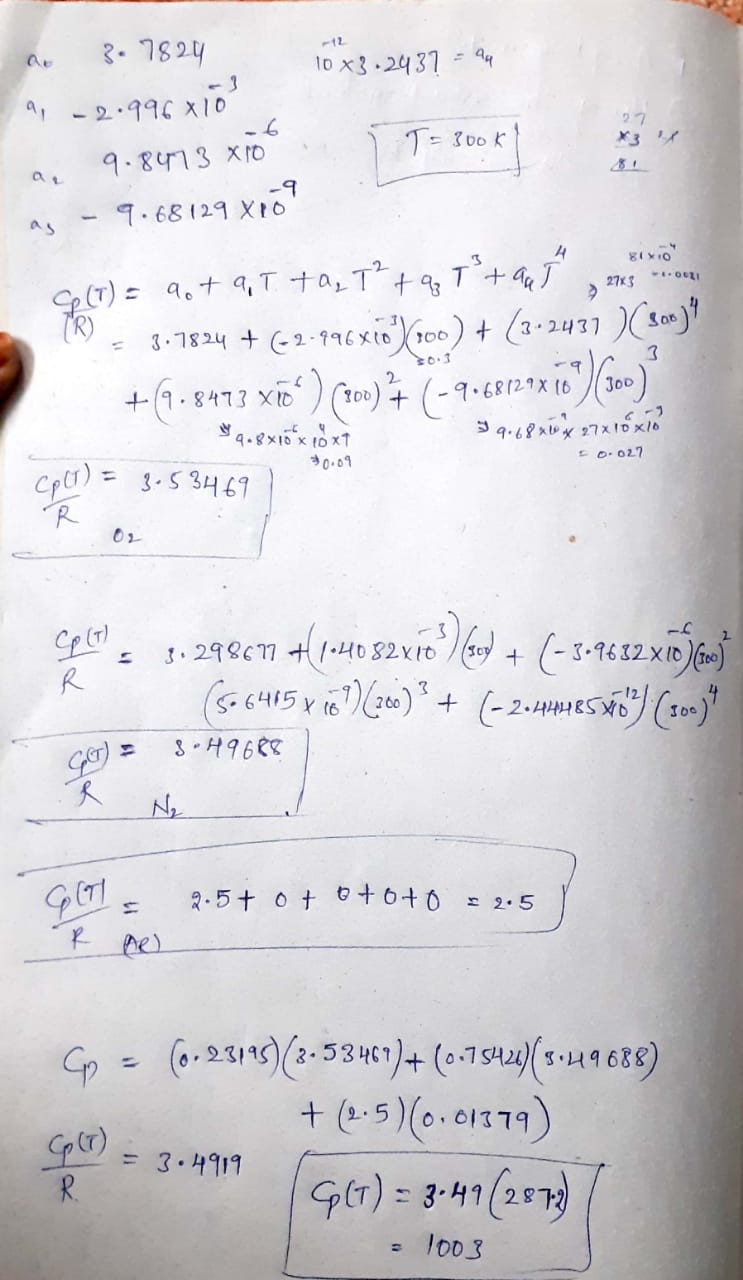 a₀ 3.7824 10⁻¹² × 3.2437 = a₄
a₁ - 2.996 × 10⁻³
a₂ 9.8473 × 10⁻⁶ T = 300 K 27
×3
81
a₃ - 9.68129 × 10⁻⁹
81×10⁻⁴
Cp(T)/(R) = a₀ + a₁T + a₂T² + a₃T³ + a₄T⁴ ⇒ 27×3
= 3.7824 + (-2.996×10⁻³)(300) + (3.2437)(300)⁴
≈0.3
+ (9.8473 ×10⁻⁶)(300)² + (-9.68129×10⁻⁹)(300)³
⇒ 9.8×10⁻⁶×10⁴×9 ⇒ 9.68×10⁻⁹×27×10⁶×10⁻³
⇒0.09 = 0.027
Cp(T)/R = 3.53469
O2
Cp(T)/R = 3.298677 + (1.4082×10⁻³)(300) + (-3.9632×10⁻⁶)(300)²
(5.6415 × 10⁻⁹)(300)³ + (-2.44485×10⁻¹²)(300)⁴
Cp(T)/R = 3.49688
N2
Cp(T)/R = 2.5 + 0 + 0 + 0 + 0 = 2.5
(Ar)
Cp = (0.23195)(3.53469) + (0.75426)(3.49688)
+ (2.5)(0.01379)
Cp(T)/R = 3.4919
Cp(T) = 3.49(287.2)
= 1003